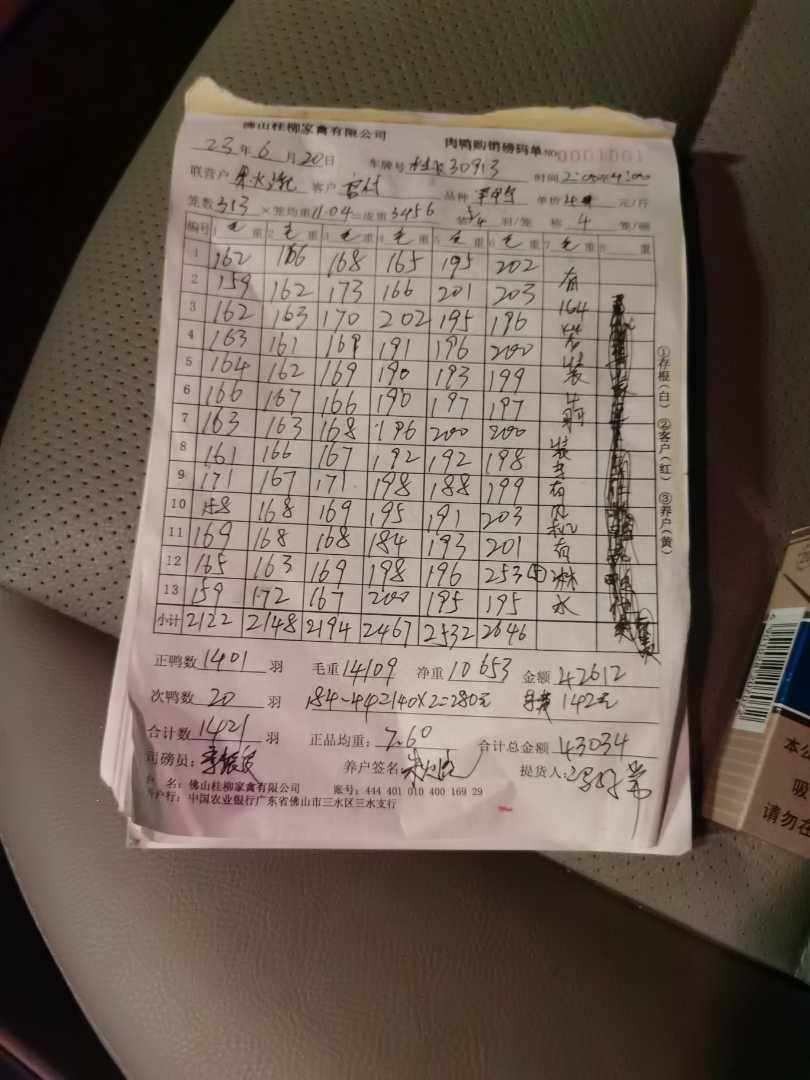 佛山桂柳家禽有限公司 肉鸭购销磅码单 NO 0001001
23年6月20日 车牌号 30913 时间
联营户 客户 品种 单价 元/斤
笼数 313 ×笼均重 11.04=皮重 3456 装 5/4 羽/笼 栋 4 笼/栋
编号 1 毛重 2 毛重 3 毛重 4 毛重 5 毛重 6 毛重 7 毛重 8 重
1 162 166 168 165 195 202
2 159 162 173 166 201 203 有
3 162 163 170 202 195 196 164
4 163 161 169 191 196 200
5 164 162 169 190 193 199 装
6 166 167 166 190 197 197
7 163 163 168 196 200 200
8 161 166 167 192 192 198 装
9 171 167 171 198 188 199 有
10 158 168 169 195 191 203
11 169 168 168 184 193 201 有
12 165 163 169 198 196 253 淋
13 159 172 167 200 195 195 水
小计 2122 2148 2194 2467 2532 2646
①存根(白) ②客户(红) ③养户(黄)
正鸭数 1401 羽 毛重 14109 净重 10653 金额 42612
次鸭数 20 羽 184-44=140×2=280元 142元
合计数 1421 羽 正品均重: 7.60 合计总金额 43034
司磅员: 养户签名: 提货人:
户 名: 佛山桂柳家禽有限公司 账号: 444 401 010 400 169 29
开户行: 中国农业银行广东省佛山市三水区三水支行
本公
吸
请勿在